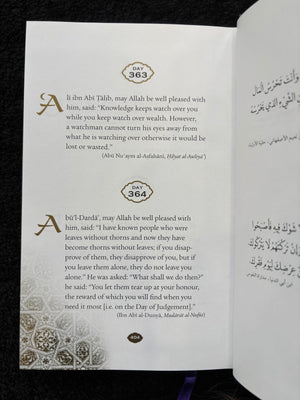 DAY
363
Alī ibn Abī Ṭālib, may Allah be well pleased with
him, said: "Knowledge keeps watch over you
while you keep watch over wealth. However,
a watchman cannot turn his eyes away from
what he is watching over otherwise it would
be lost or wasted."
(Abū Nuʿaym al-Aṣfahānī, Ḥilyat al-Awliyāʾ)
DAY
364
Abū'l-Dardāʾ, may Allah be well pleased with
him, said: "I have known people who were
leaves without thorns and now they have
become thorns without leaves; if you disap-
prove of them, they disapprove of you, but if
you leave them alone, they do not leave you
alone." He was asked: "What shall we do then?"
he said: "You let them tear up at your honour,
the reward of which you will find when you
need it most [i.e. on the Day of Judgement]."
(Ibn Abī al-Dunyā, Mudārāt al-Nofis)
404
وَأَنْتَ تَحْرُسُ الْمَالَ